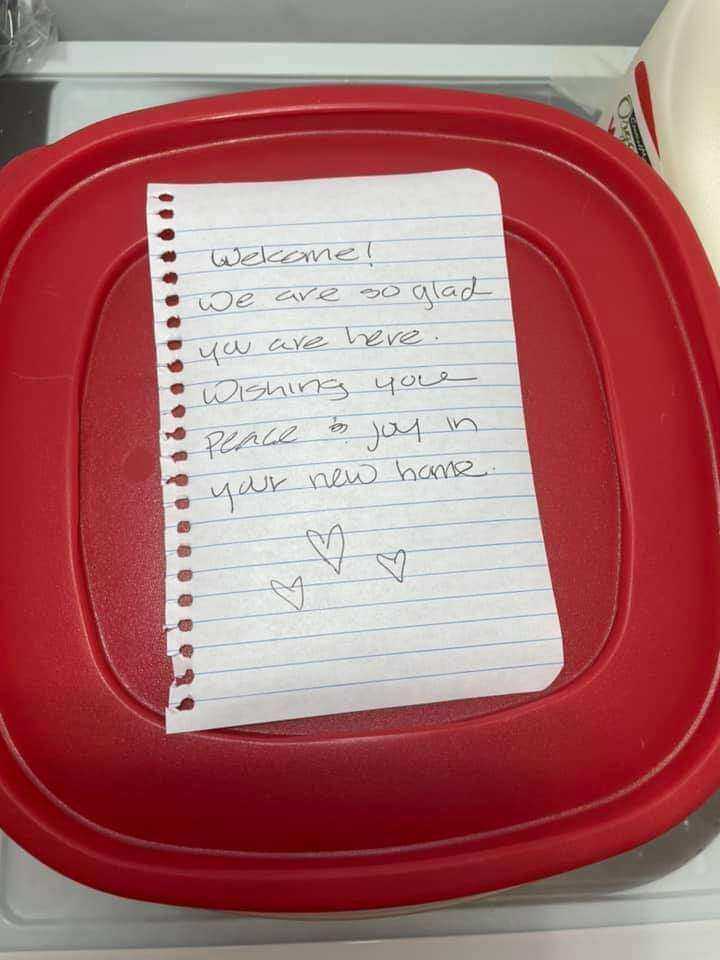 Welcome!
We are so glad
you are here.
Wishing you
peace & joy in
your new home.